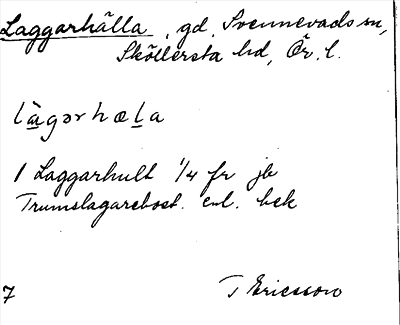 Laggarhälla, gd, Svennevads sn,
Sköllersta hd, Ör. l.
làgərhæla
1 Laggarhult 1/4 fr jb
Trumslagarebost. enl. bek
7 T Ericsson